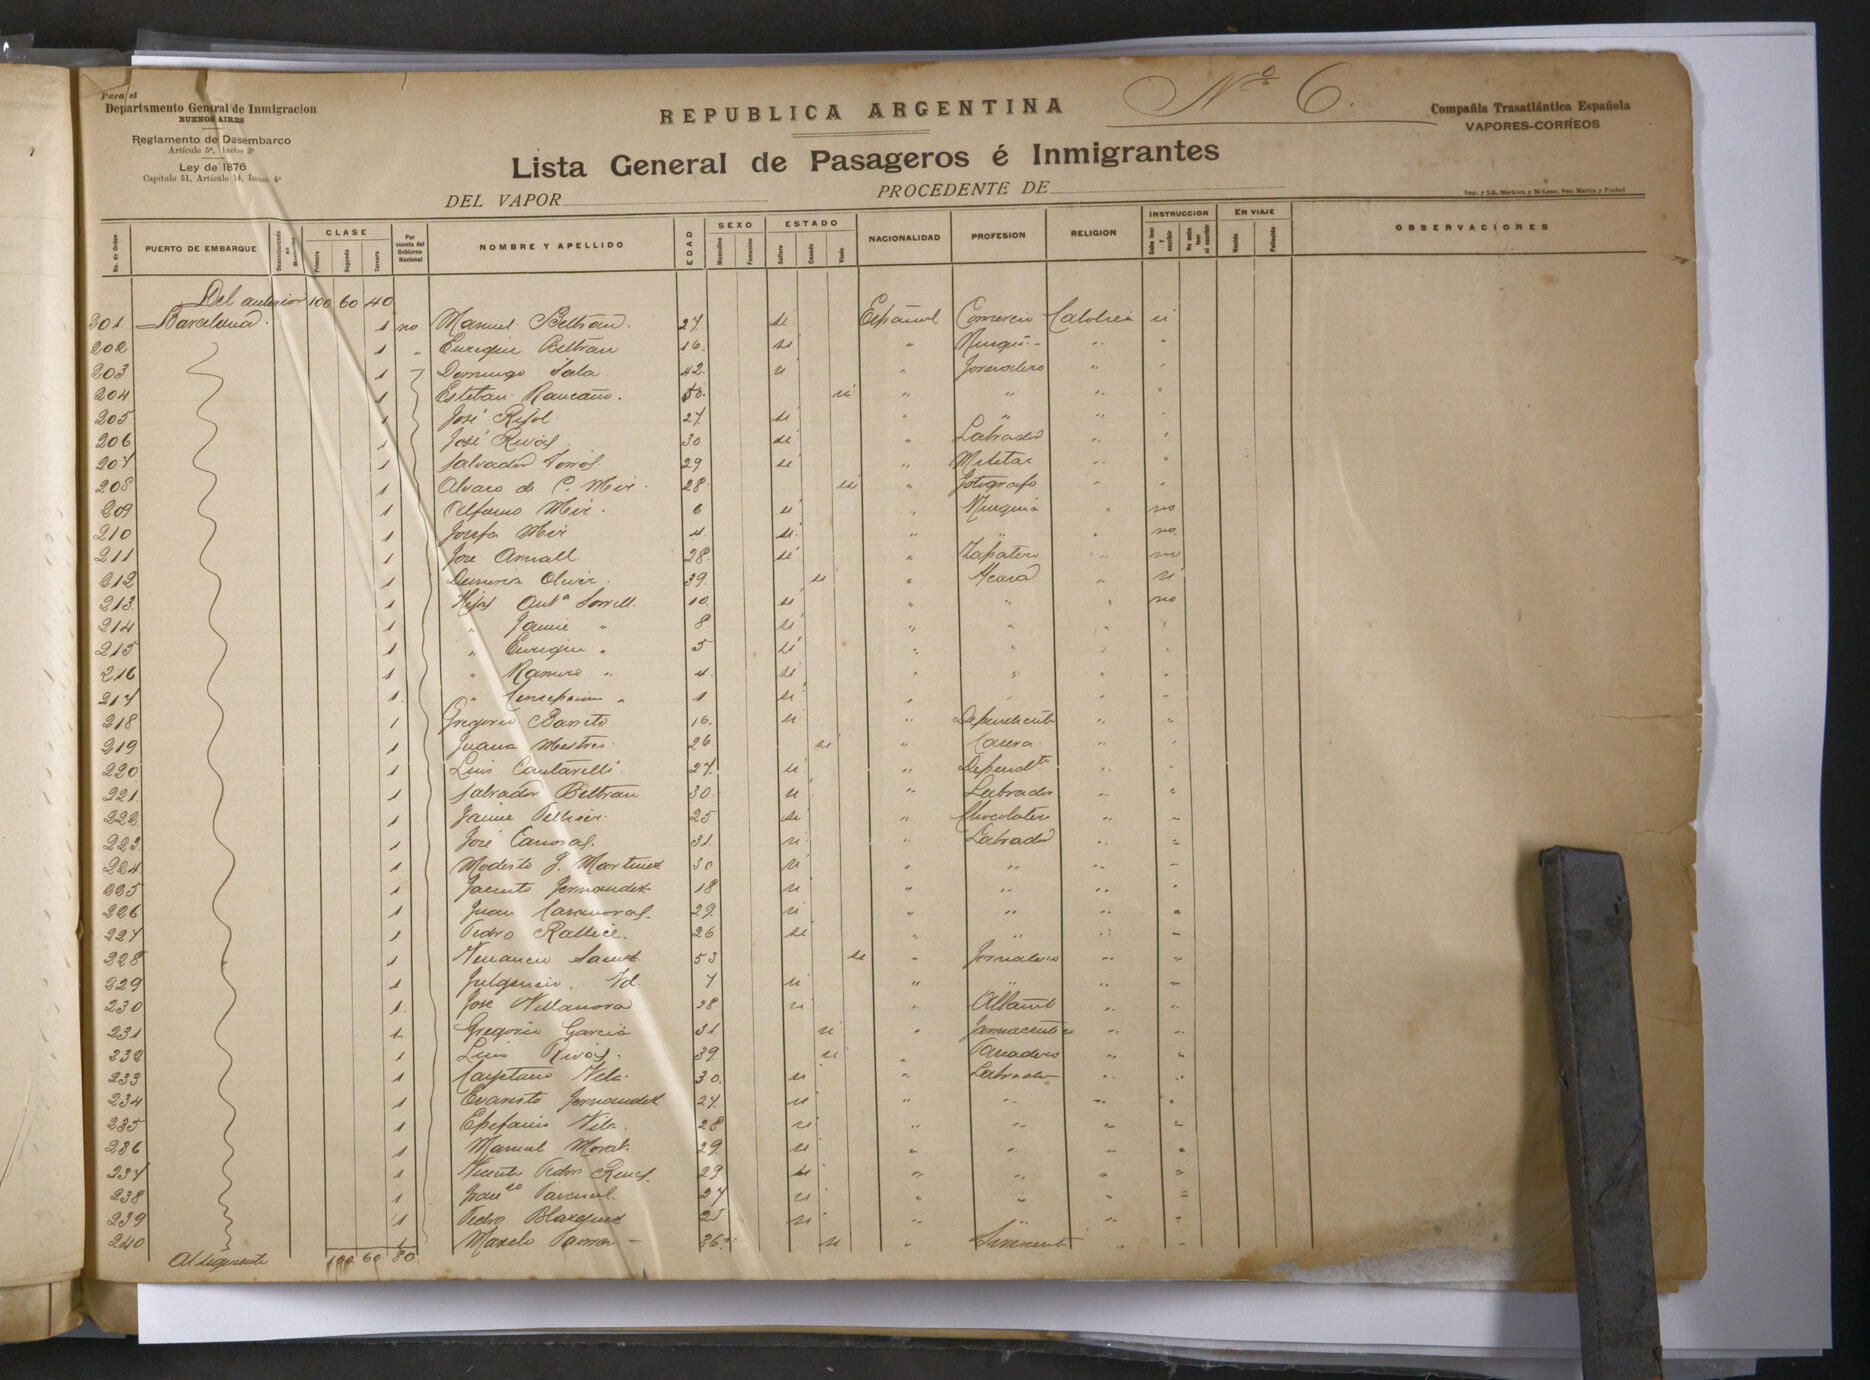 Para el
Departamento General de Inmigracion
BUENOS AIRES
Reglamento de Desembarco
Artículo 5º, Inciso 3º
Ley de 1876
Capítulo 51, Artículo 14, Inciso 4º
REPUBLICA ARGENTINA
Nº 6.
Compañía Trasatlántica Española
VAPORES-CORREOS
Lista General de Pasageros é Inmigrantes
DEL VAPOR
PROCEDENTE DE
Imp. y Lit. San Martin y Piedad
No. de Orden
PUERTO DE EMBARQUE
Desembarcado en
CLASE
Primera
Segunda
Tercera
Por cuenta del Gobierno Nacional
NOMBRE Y APELLIDO
EDAD
SEXO
Masculino
Femenino
ESTADO
Soltero
Casado
Viudo
NACIONALIDAD
PROFESION
RELIGION
INSTRUCCION
Sabe leer y escribir
No sabe leer ni escribir
EN VIAJE
Nacido
Fallecido
OBSERVACIONES
Del anterior 100 60 40
201 Barcelona 1 no Manuel Beltran. 27. si Español Comercio Catolica si
202 1 " Enrique Beltran 16. si " " "
203 1 Domingo Sala 42. si " Jornalero " "
204 1 Esteban 50. si " " " "
205 1 José 27. si " " " "
206 1 José Rivas 30 si " Labrador " "
207 1 Salvador 29 si " Militar " "
208 1 Alvaro de C. Mir. 28 si " Fotografo " "
209 1 Alfonso Mir. 6 si " Ninguna " no
210 1 Josefa Mir 4. si " " " no
211 1 Jose 28. si " Zapatero " no
212 1 Oliver. 39. si " " si
213 1 Hijos Antª 10. si " " " no
214 1 " Jaime " 8 si " " " "
215 1 " Enrique " 5 si " " " "
216 1 " Ramiro " 4. si " " " "
217 1 " Concepcion " 1 si " " " "
218 1 Gregorio 16. si " Dependiente " "
219 1 Juana Mestres. 26 si " " "
220 1 Luis Cantarelli. 27. si " Dependte " "
221 1 Salvador Beltran 30. si " Labrador " "
222 1 Jaime 25 si " Chocolatero " "
223 1 José 31. si " Labrador " "
224 1 Modesto J. Martinez 30 si " " " "
225 1 Jacinto Fernandez 18 si " " " "
226 1 Juan 29. si " " " "
227 1 Pedro 26 si " " " "
228 1 Venancio 53 si " Jornalero " "
229 1 Fulgencio. Id. 7 si " " " "
230 1 José Villanova 28 si " Albañil " "
231 1 Gregorio Garcia 31 si " Farmaceutico " "
232 1 Luis Rivas. 39. si " Panadero " "
233 1 Cayetano Vela. 30. si " Labrador " "
234 1 Evaristo Fernandez 27. si " " " "
235 1 Epifanio 28 si " " " "
236 1 Manuel Morat. 29. si " " " "
237 1 Vicente Pedro 29 si " " " "
238 1 Franco Pascual. 27 si " " " "
239 1 Pedro Blazquez 25 si " " " "
240 1 36. si " Sirviente " "
Al siguiente 100 60 80